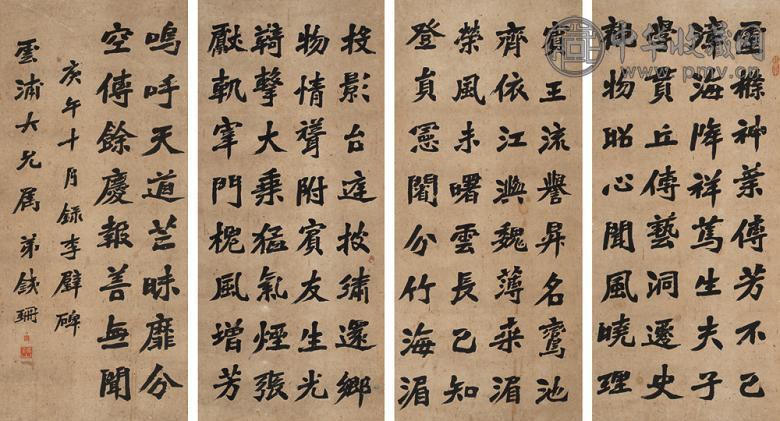 中华收藏网
www.pmv.cn
神葉傳芳不已
清海降祥篤生夫子
學貫丘傳藝洞遷史
神物昭心聞風曉理
賓王流譽昇名鸞池
齊依江輿魏薄桒湄
榮風未曙雲長已知
登貞憲閣分竹海湄
投影台庭披繡還鄉
物情聳附賓友生光
擊大乘猛氣煙張
獻軌宰門槐風增芳
嗚呼天道芒昧靡分
空傳餘慶報善無聞
庚午十月録李璧碑
雲浦大兄属弟鈇珊